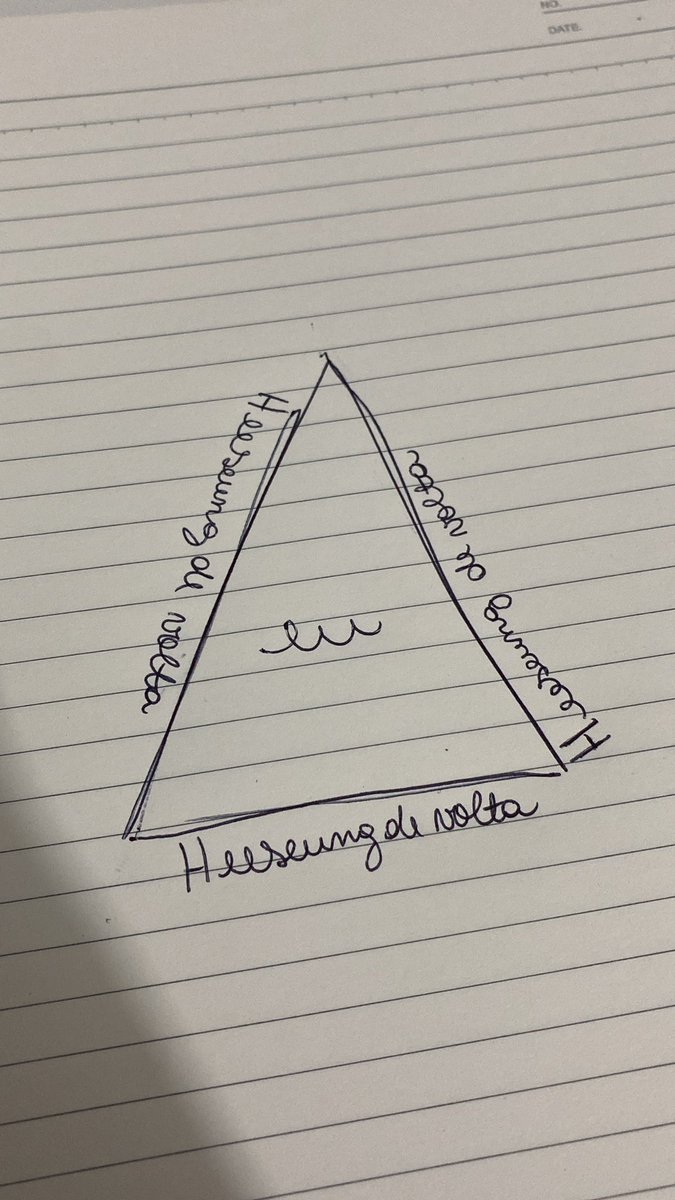 NO.
DATE.
Heeseung de volta
Heeseung de volta
eu
Heeseung de volta